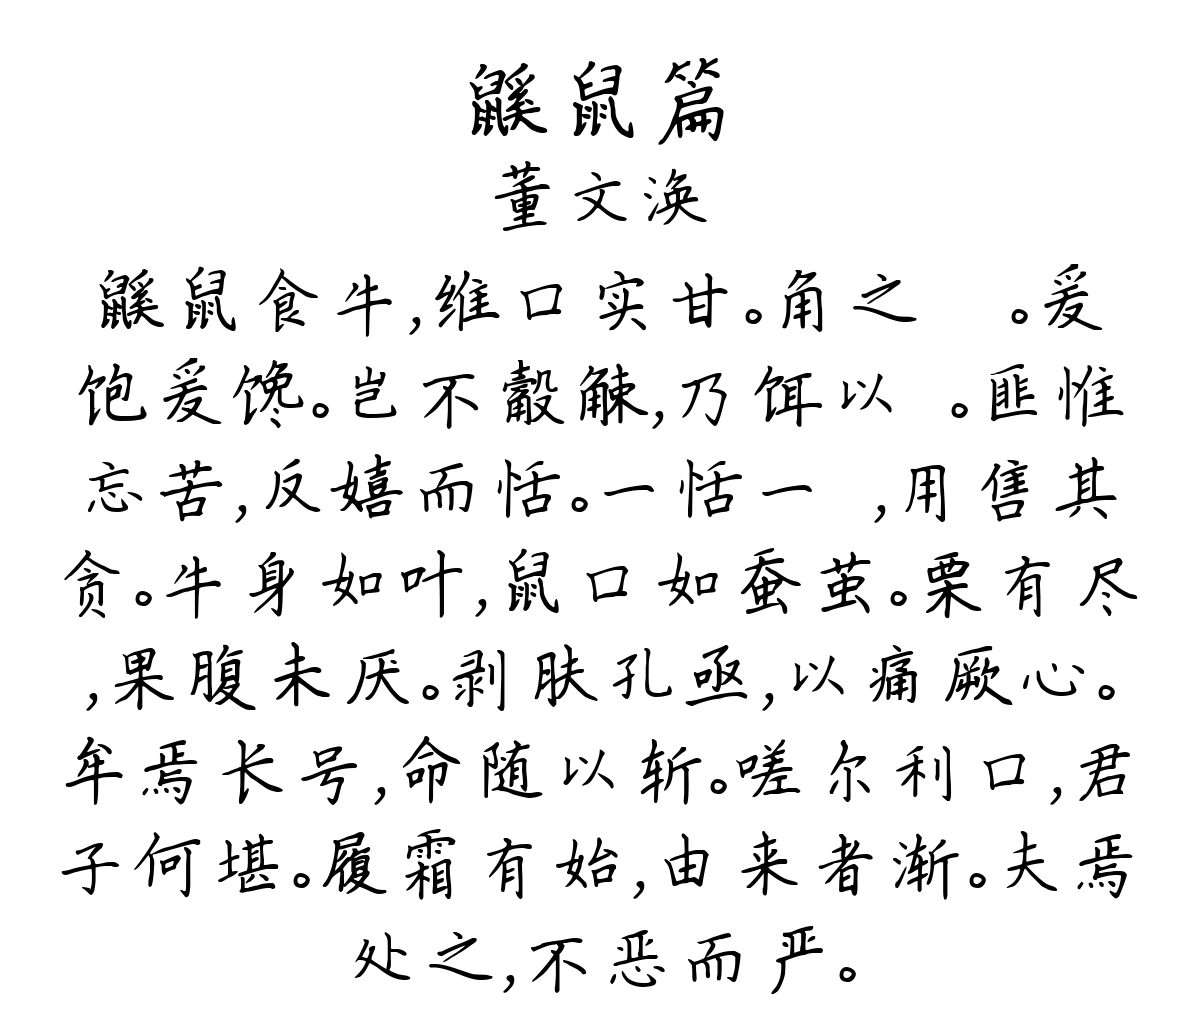 鼷鼠篇
董文涣
鼷鼠食牛,维口实甘。角之 。爰
饱爰馋。岂不觳觫,乃饵以 。匪惟
忘苦,反嬉而恬。一恬一 ,用售其
贪。牛身如叶,鼠口如蚕茧。栗有尽
,果腹未厌。剥肤孔亟,以痛厥心。
牟焉长号,命随以斩。嗟尔利口,君
子何堪。履霜有始,由来者渐。夫焉
处之,不恶而严。